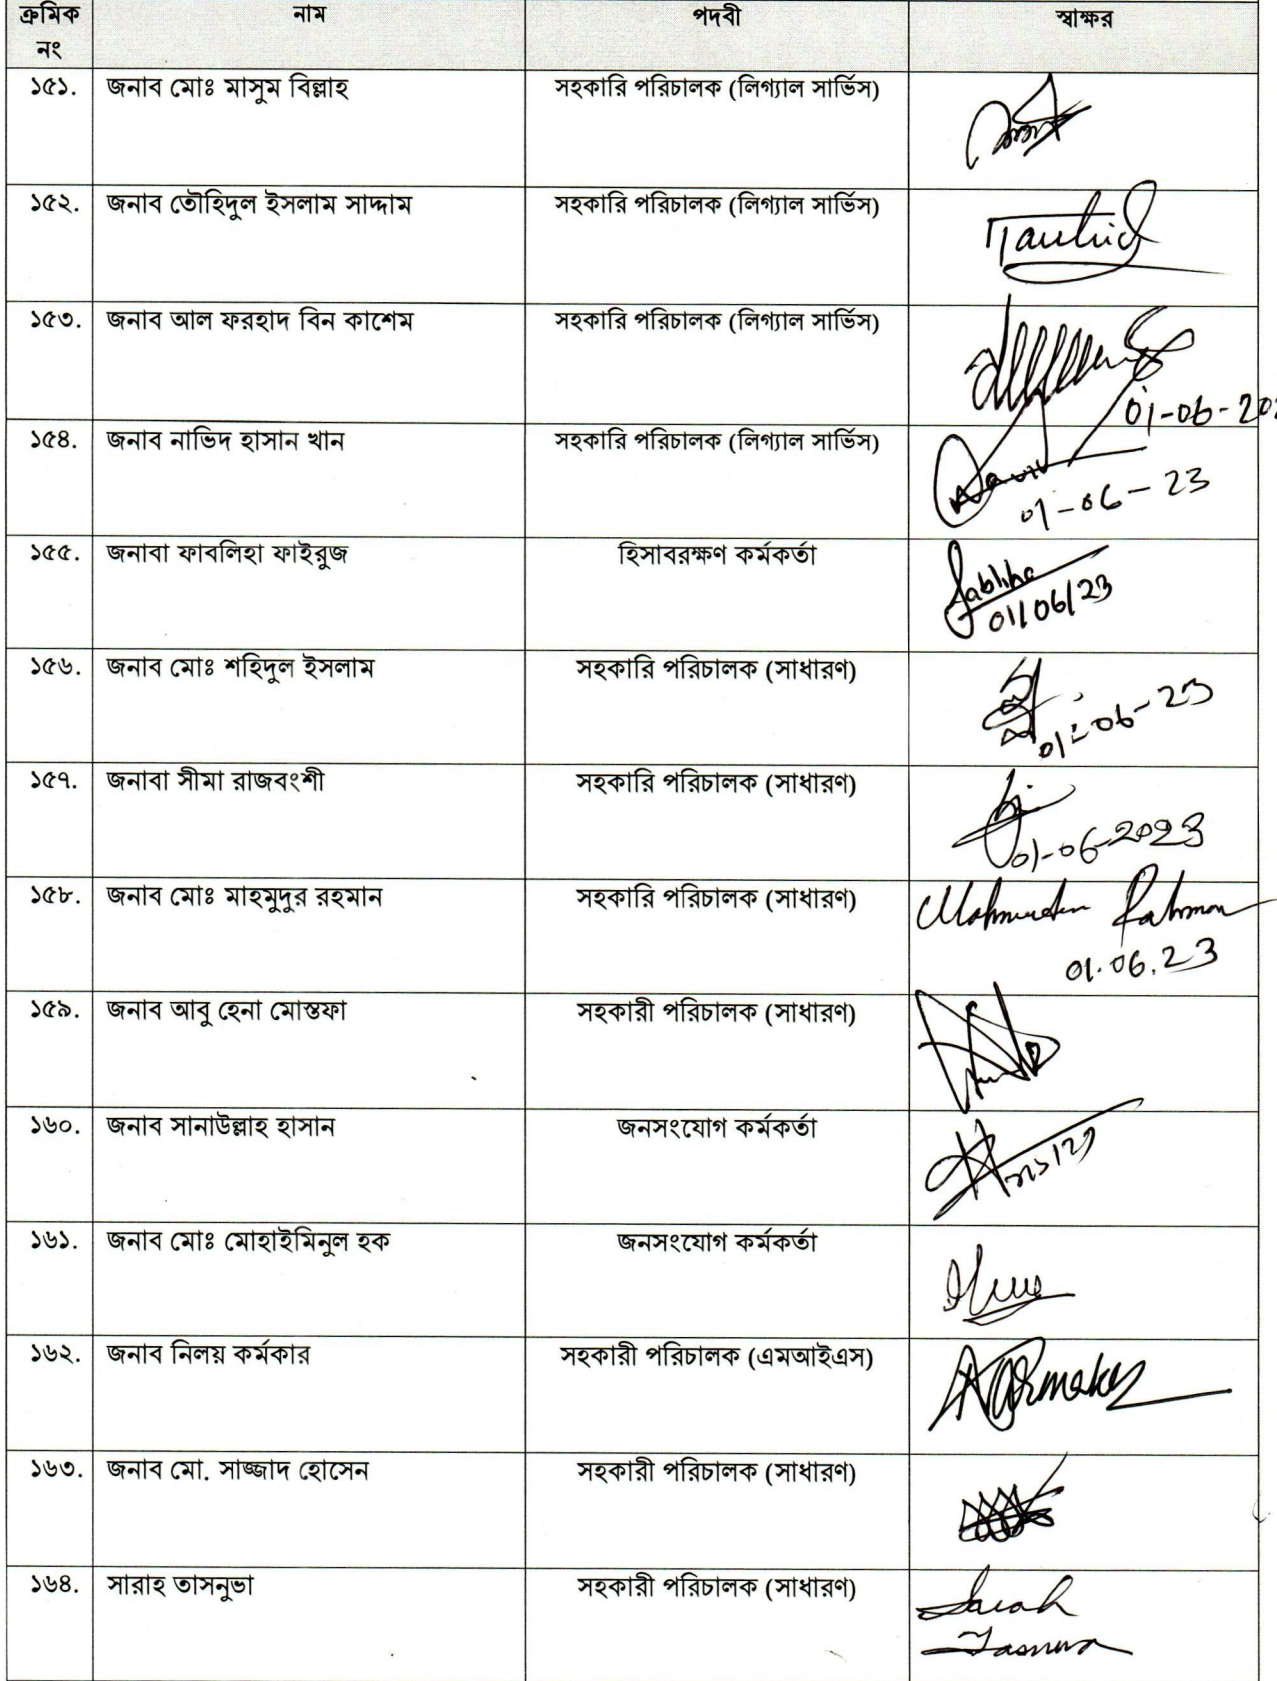 ক্রমিক নং নাম পদবী স্বাক্ষর
১৫১. জনাব মোঃ মাসুম বিল্লাহ সহকারি পরিচালক (লিগ্যাল সার্ভিস)
১৫২. জনাব তৌহিদুল ইসলাম সাদ্দাম সহকারি পরিচালক (লিগ্যাল সার্ভিস) Tauhid
১৫৩. জনাব আল ফরহাদ বিন কাশেম সহকারি পরিচালক (লিগ্যাল সার্ভিস)
01-06-202
১৫৪. জনাব নাভিদ হাসান খান সহকারি পরিচালক (লিগ্যাল সার্ভিস)
01-06-23
১৫৫. জনাবা ফাবলিহা ফাইরুজ হিসাবরক্ষণ কর্মকর্তা Fabliha
01/06/23
১৫৬. জনাব মোঃ শহিদুল ইসলাম সহকারি পরিচালক (সাধারণ)
01-06-23
১৫৭. জনাবা সীমা রাজবংশী সহকারি পরিচালক (সাধারণ)
01-06-2023
১৫৮. জনাব মোঃ মাহমুদুর রহমান সহকারি পরিচালক (সাধারণ) Mahmudur Rahman
01.06.23
১৫৯. জনাব আবু হেনা মোস্তফা সহকারী পরিচালক (সাধারণ)
১৬০. জনাব সানাউল্লাহ হাসান জনসংযোগ কর্মকর্তা
১৬১. জনাব মোঃ মোহাইমিনুল হক জনসংযোগ কর্মকর্তা
১৬২. জনাব নিলয় কর্মকার সহকারী পরিচালক (এমআইএস) Karmaker
১৬৩. জনাব মো. সাজ্জাদ হোসেন সহকারী পরিচালক (সাধারণ)
১৬৪. সারাহ তাসনুভা সহকারী পরিচালক (সাধারণ) Sarah
Tasnuva